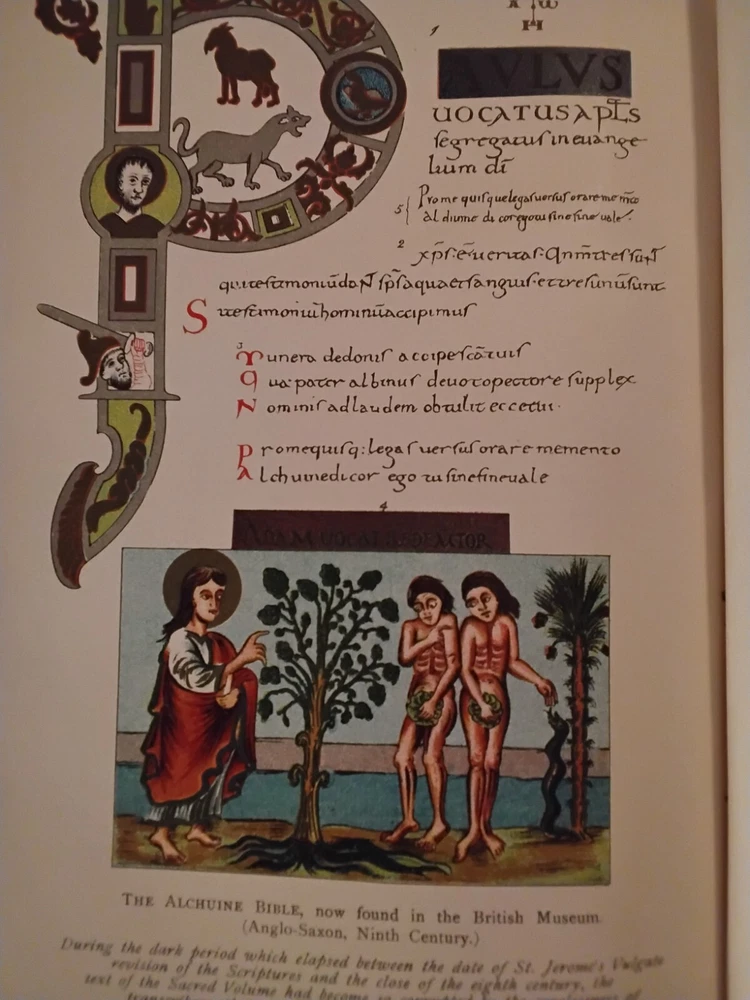 AVLVS
UOCATUS APLS
segregatus in euange
lium di
5 Pro me quisque legas uersus orare memto
2 xps e ueritas Qnm tres sunt
qui testimoniu dant sps aqua et sanguis et tres unu sunt
Si testimoniu hominu accipimus
3 Munera dedonis accipe scatuis
Qua pater albinus deuoto pectore supplex
Nominis ad laudem obtulit ecce tui
Pro me quisq: legas uersus orare memento
Alchuine dicor ego tu sine fine uale
4
THE ALCHUINE BIBLE, now found in the British Museum.
(Anglo-Saxon, Ninth Century.)
During the dark period which elapsed between the date of St. Jerome's Vulgate
revision of the Scriptures and the close of the eighth century, the
text of the Sacred Volume had become so